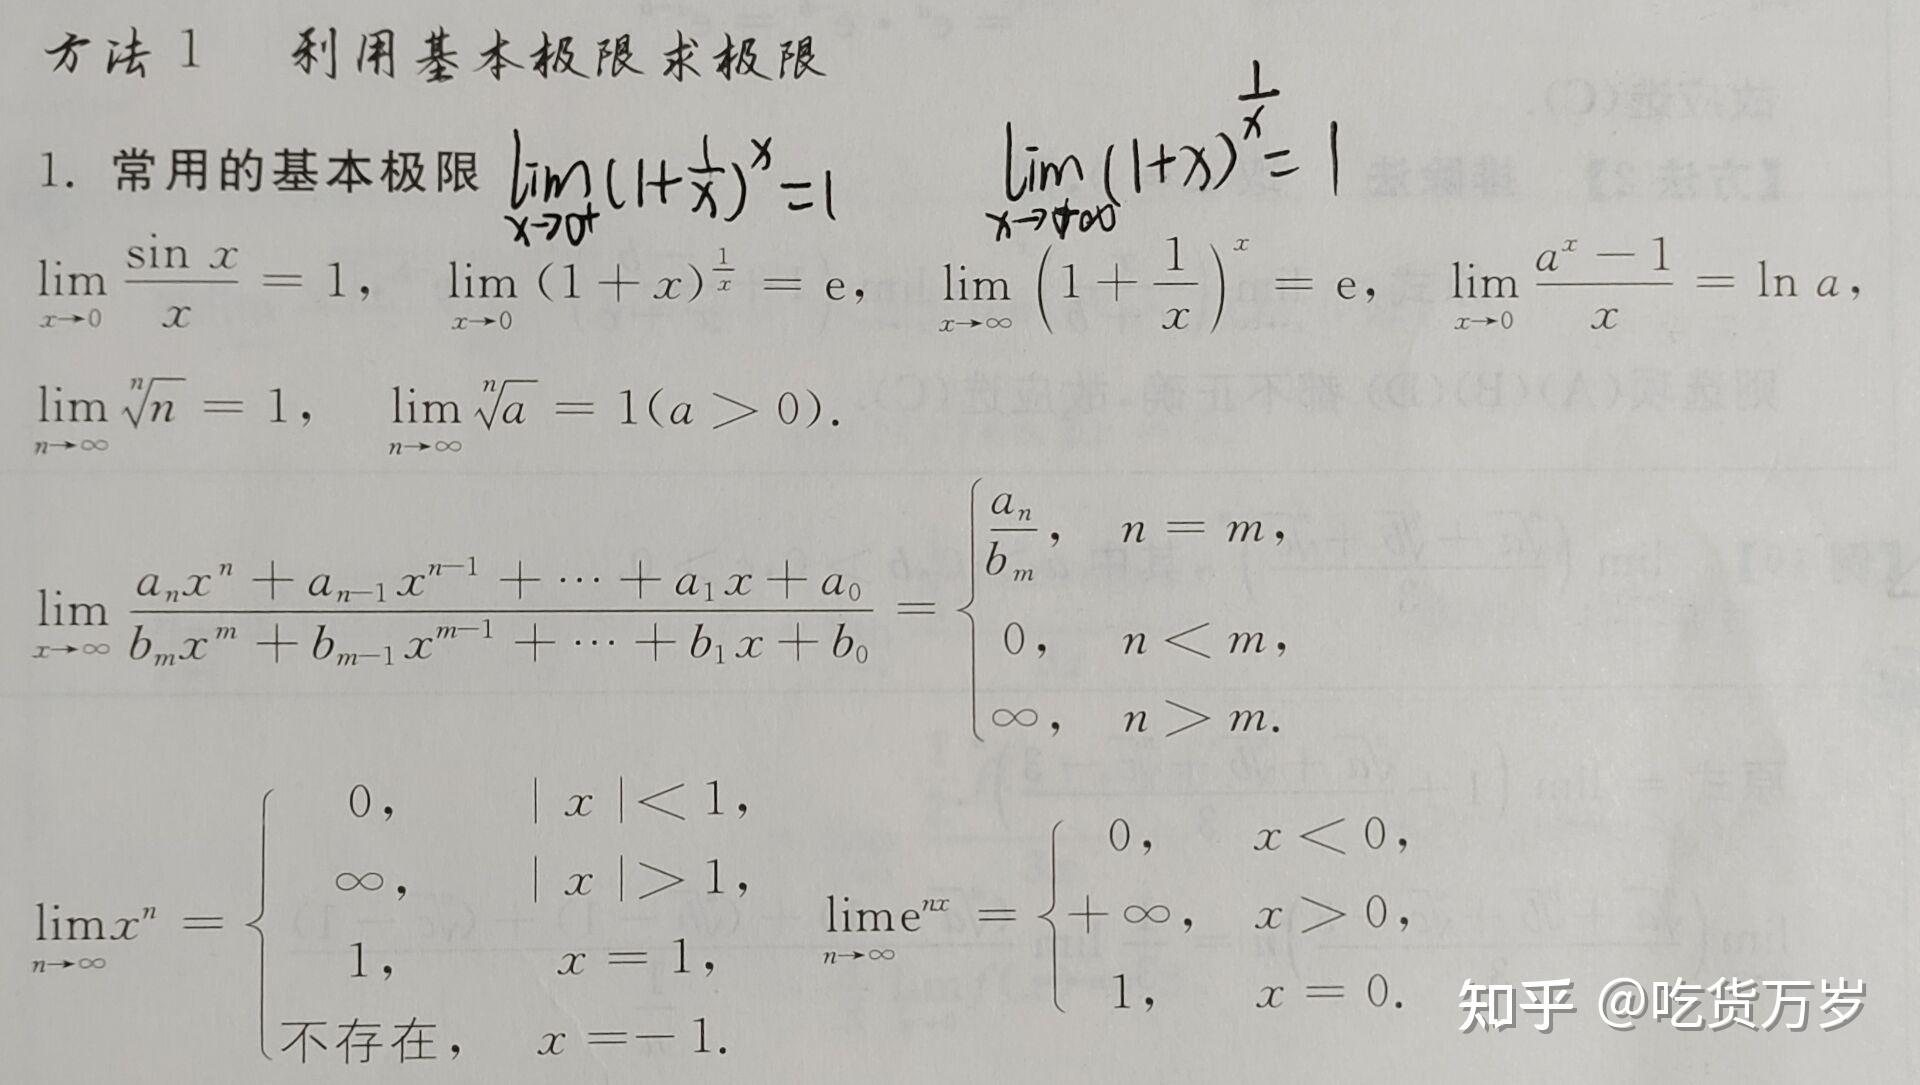 方法1 利用基本极限求极限
1. 常用的基本极限 lim_{x→0+} (1+1/x)^x = 1 lim_{x→+∞} (1+x)^{1/x} = 1
lim_{x→0} sin x / x = 1, lim_{x→0} (1+x)^{1/x} = e, lim_{x→∞} (1+1/x)^x = e, lim_{x→0} (a^x − 1)/x = ln a,
lim_{n→∞} ⁿ√n = 1, lim_{n→∞} ⁿ√a = 1(a > 0).
lim_{x→∞} (a_n x^n + a_{n−1} x^{n−1} + ⋯ + a_1 x + a_0)/(b_m x^m + b_{m−1} x^{m−1} + ⋯ + b_1 x + b_0) = { a_n/b_m, n = m,
0, n < m,
∞, n > m.
lim_{n→∞} x^n = { 0, |x| < 1,
∞, |x| > 1,
1, x = 1,
不存在, x = −1.
lim_{n→∞} e^{nx} = { 0, x < 0,
+∞, x > 0,
1, x = 0.
知乎 @吃货万岁